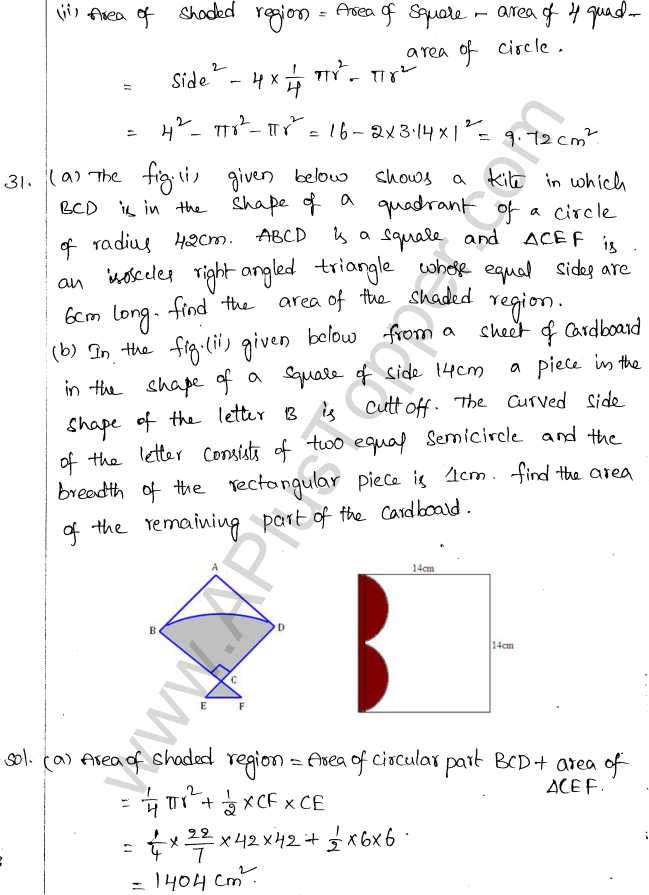 (ii) Area of shaded region = Area of square - area of 4 quad-
area of circle.
= Side² - 4 × 1/4 πr² - πr²
= 4² - πr² - πr² = 16 - 2×3.14×1² = 9.72 cm².
31. (a) The fig.(i) given below shows a kite in which
BCD is in the shape of a quadrant of a circle
of radius 42cm. ABCD is a square and ΔCEF is
an isosceles right angled triangle whose equal sides are
6cm long. find the area of the shaded region.
(b) In the fig.(ii) given below from a sheet of Cardboard
in the shape of a square of side 14cm a piece in the
shape of the letter B is cutt off. The curved side
of the letter consists of two equal semicircle and the
breadth of the rectangular piece is 1cm. find the area
of the remaining part of the cardboard.
A
B
D
C
E F
14cm
14cm
Sol. (a) Area of shaded region = Area of circular part BCD + area of
ΔCEF.
= 1/4 πr² + 1/2 × CF × CE
= 1/4 × 22/7 × 42 × 42 + 1/2 × 6×6.
= 1404 cm².
www.APlusTopper.com